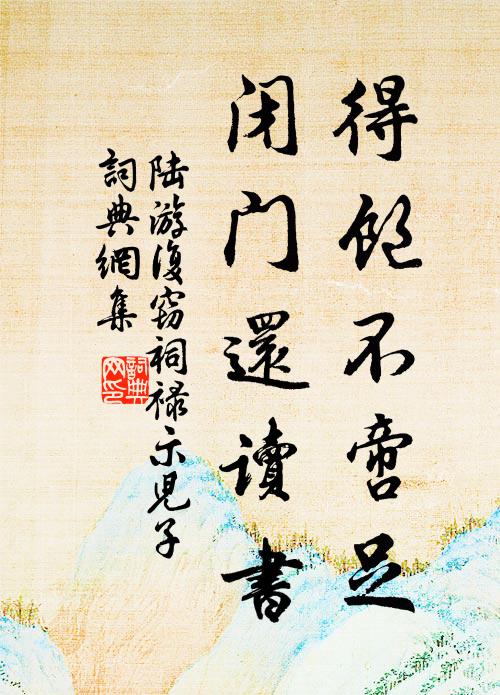 得飽不啻足
閉門還讀書
陸游復竊祠祿示兒子
詞典網集
詞典網印